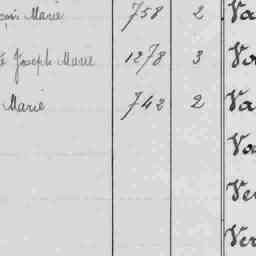 Marie 758 2 Va
Joseph Marie 1278 3 Va
Marie 742 2 Va
Va
Ve
Ver